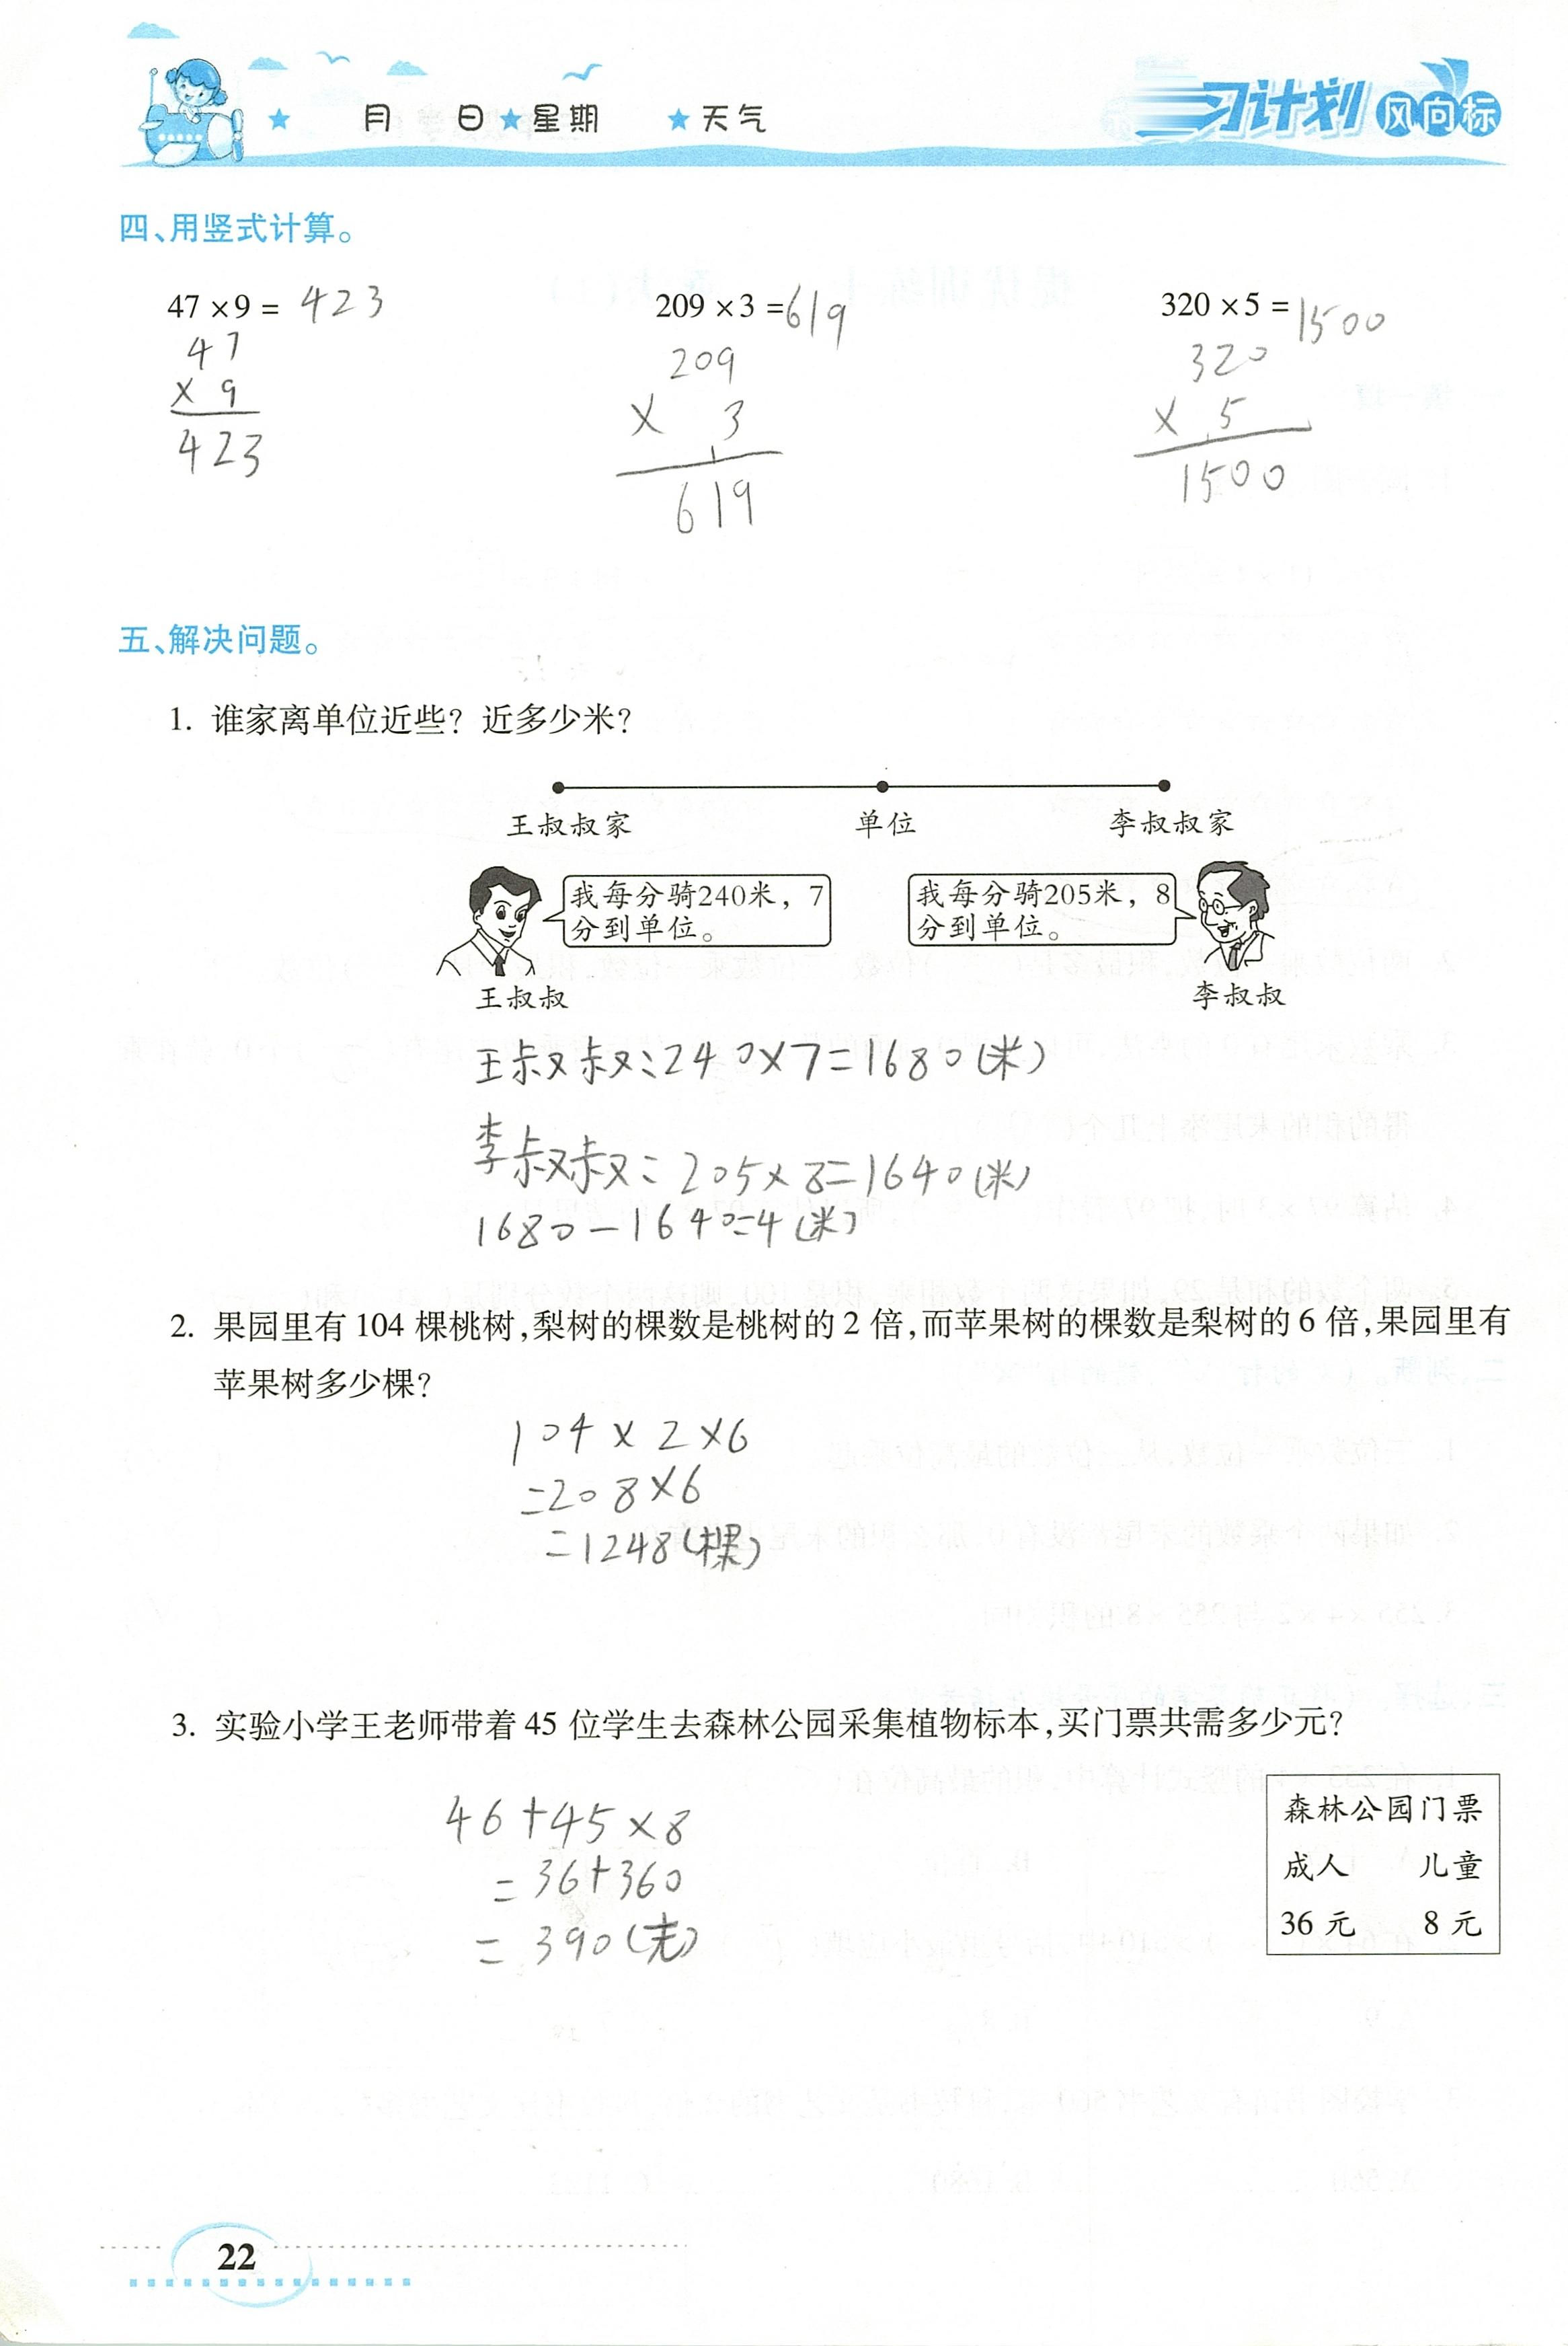 月 日 星期 天气
习计划 风向标
四、用竖式计算。
47×9= 423
209×3=619
320×5=1500
47
209
320
× 9
× 3
× 5
423
1
1
619
1500
五、解决问题。
1. 谁家离单位近些？近多少米？
王叔叔家 单位 李叔叔家
我每分骑240米，7
分到单位。
我每分骑205米，8
分到单位。
王叔叔
李叔叔
王叔叔:240×7=1680(米)
李叔叔: 205×8=1640(米)
1680-1640=4(米)
2. 果园里有104棵桃树，梨树的棵数是桃树的2倍，而苹果树的棵数是梨树的6倍，果园里有
苹果树多少棵？
104×2×6
=208×6
=1248(棵)
3. 实验小学王老师带着45位学生去森林公园采集植物标本，买门票共需多少元？
46+45×8
=36+360
=390(元)
森林公园门票
成人 儿童
36元 8元
22